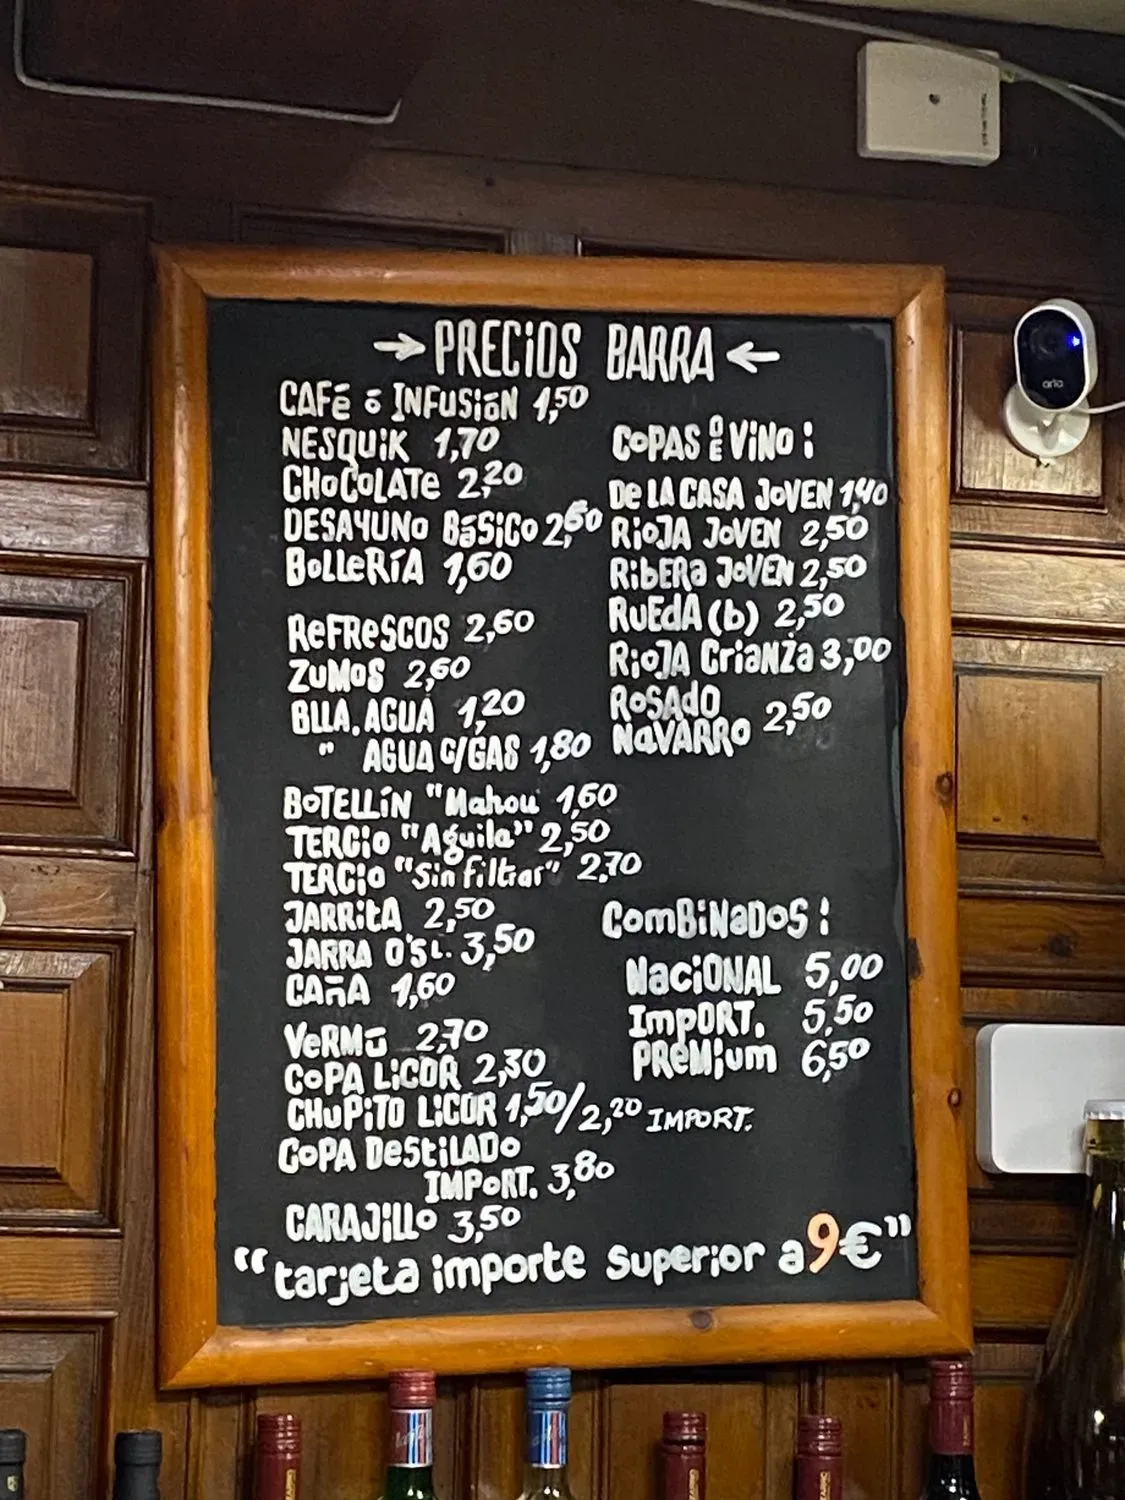 → PRECIOS BARRA ←
CAFé ó INFUSIóN 1,50
NESQUIK 1,70
CHOCOLATE 2,20
DESAYUNO BáSICO 2,60
BOLLERÍA 1,60
REFRESCOS 2,60
ZUMOS 2,60
BLLA. AGUA 1,20
" AGUA C/GAS 1,80
BOTELLÍN "Mahou 1,60
TERCIO "Aguila" 2,50
TERCIO "Sin filtrar" 2,70
JARRITA 2,50
JARRA 0'5 L. 3,50
CAÑA 1,60
VERMÚ 2,70
COPA LICOR 2,30
CHUPITO LICOR 1,50/2,20 IMPORT.
COPA DESTILADO
IMPORT. 3,80
CARAJILLO 3,50
COPAS DE VINO :
DE LA CASA JOVEN 1,40
RIOJA JOVEN 2,50
RIBERA JOVEN 2,50
RUEDA (b) 2,50
RIOJA CRIANZA 3,00
ROSADO
NAVARRO 2,50
COMBINADOS :
NACIONAL 5,00
IMPORT. 5,50
PREMIUM 6,50
"tarjeta importe superior a 9€"
arlo